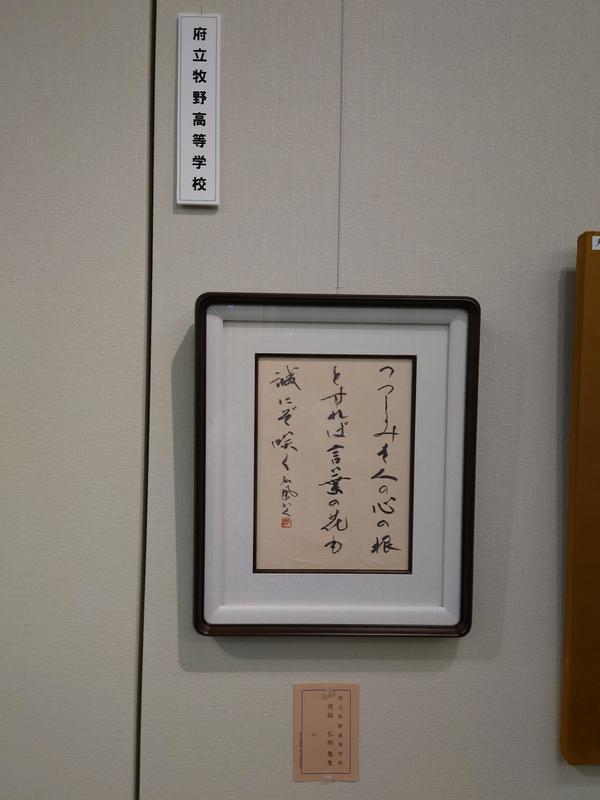 府立牧野高等学校
つつしみを人の心の根
とすれば言葉の花も
誠にぞ咲く 弘風かく
府立牧野高等学校
弘明先生
心